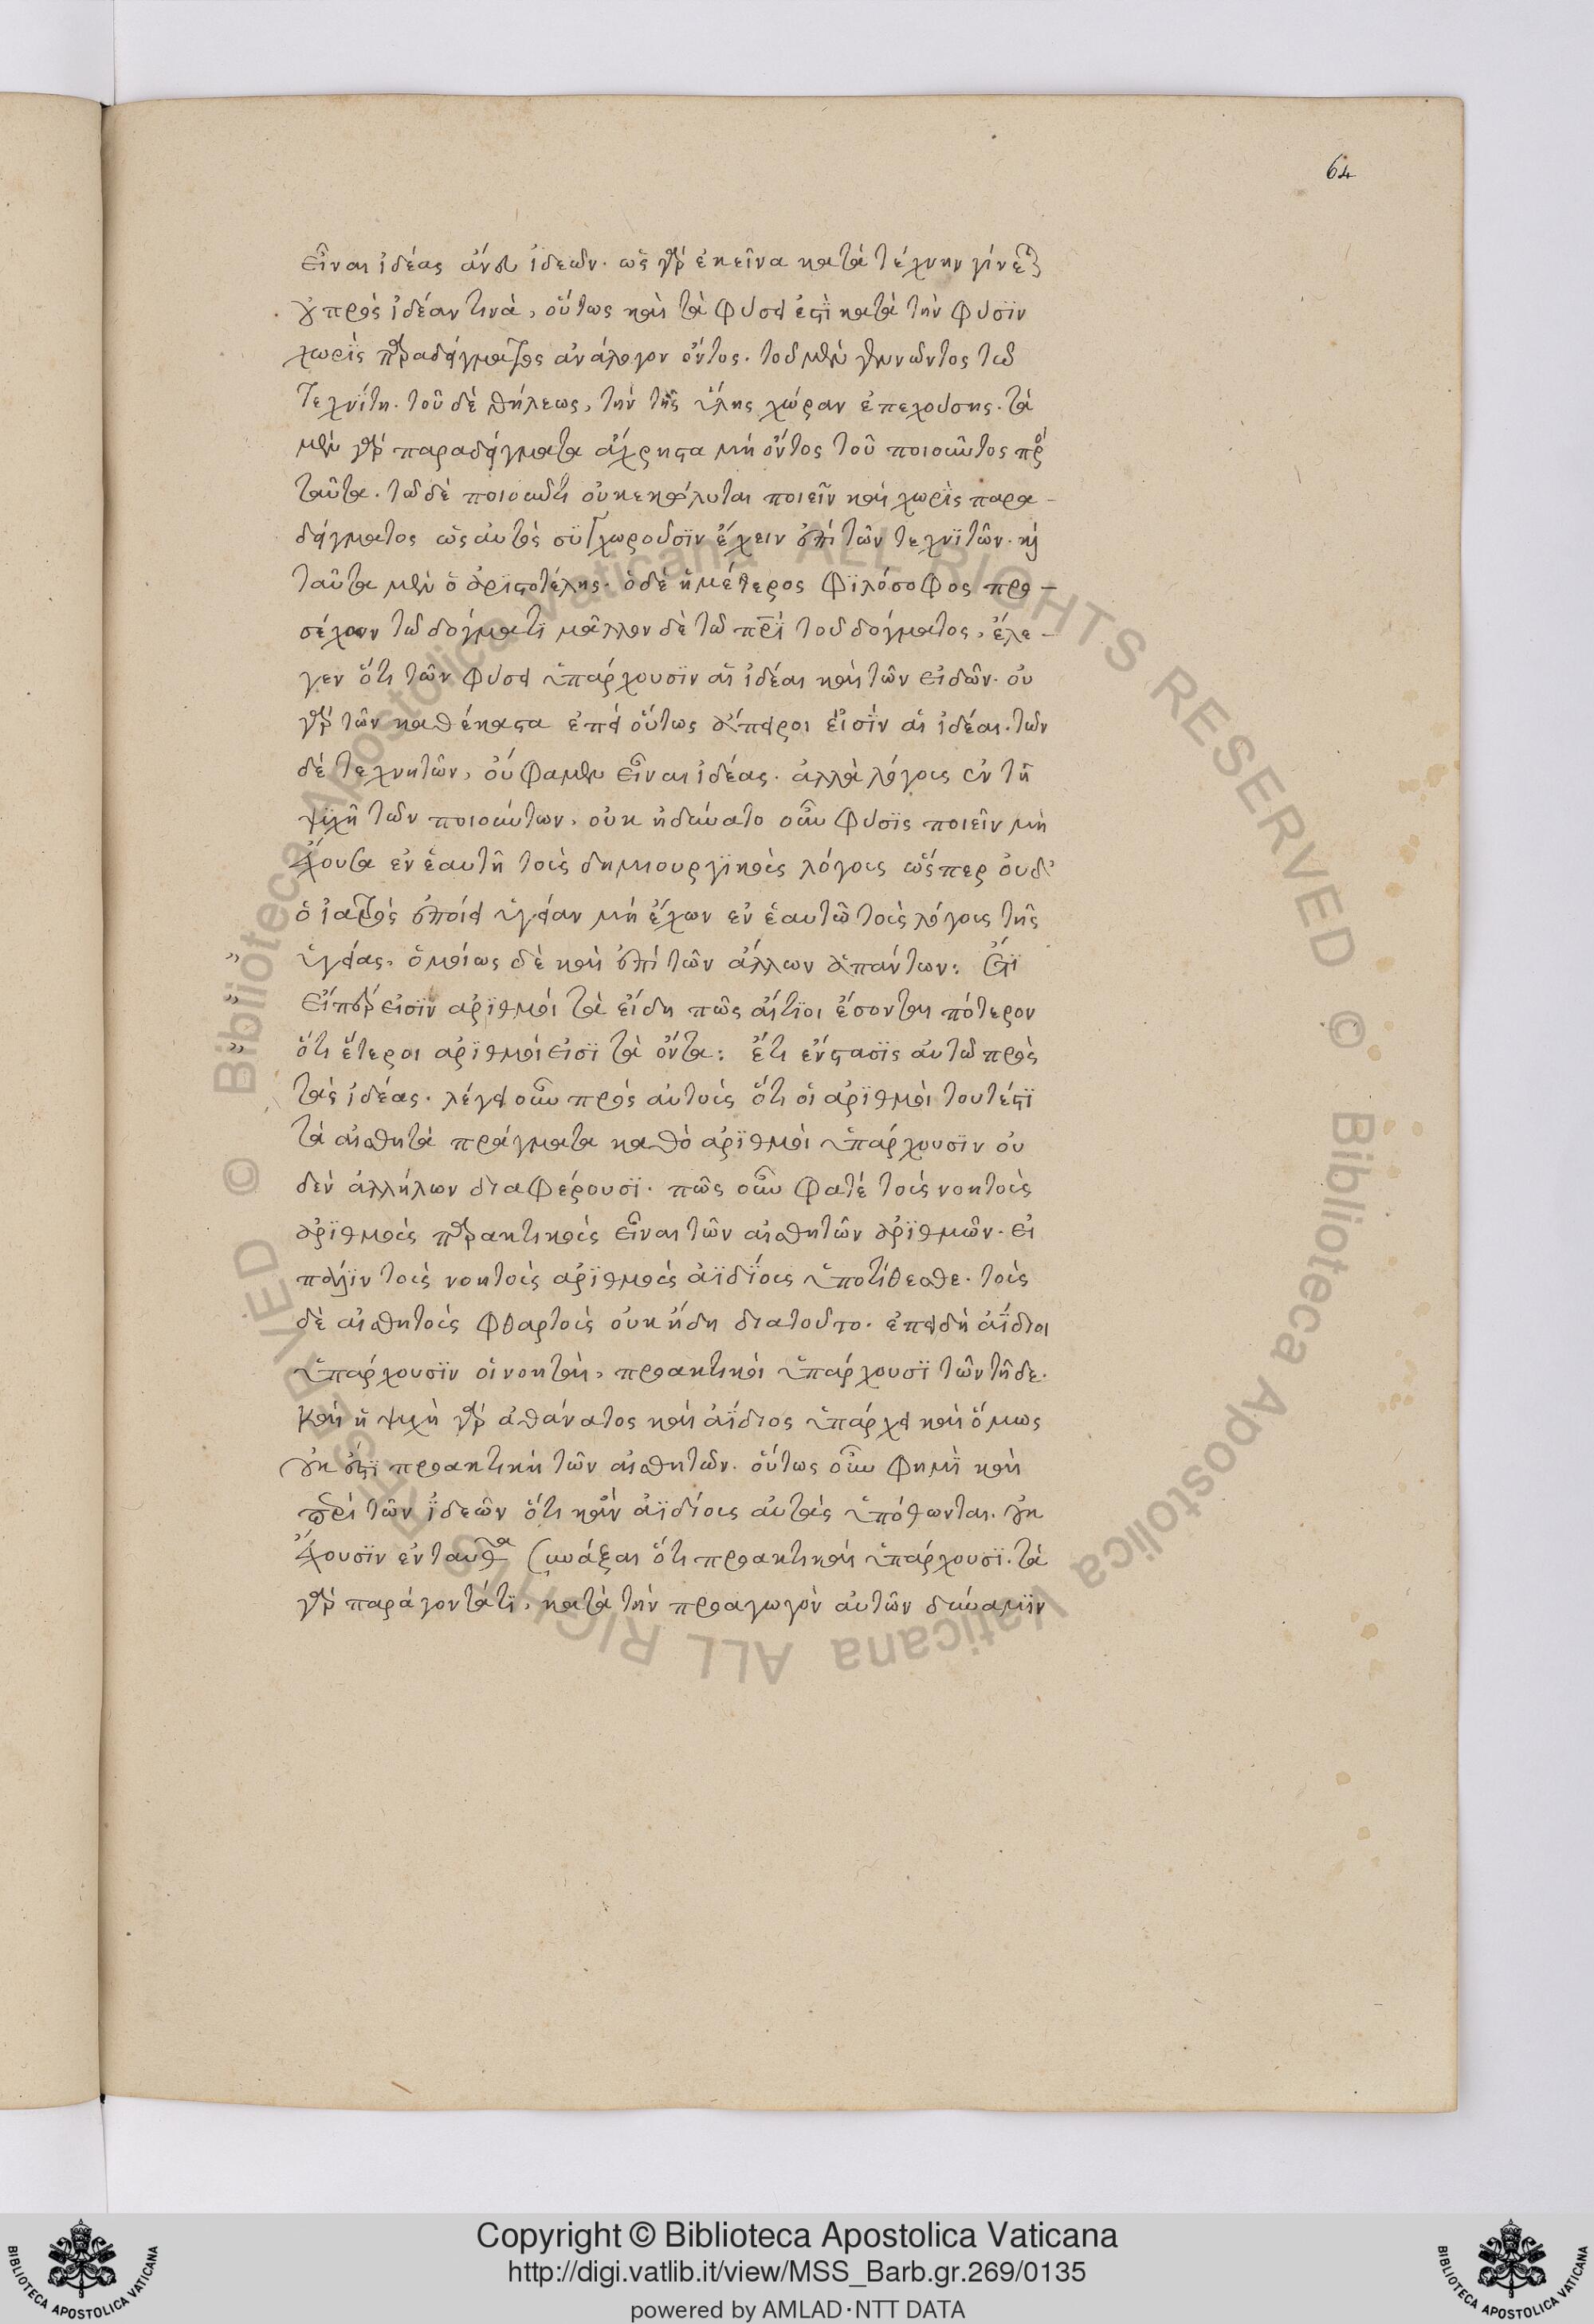 64
εἶναι ἰδέας ἄνευ ἰδεῶν. ὡς γὰρ ἐκεῖνα κατὰ τέχνην γίνεται
οὐ πρὸς ἰδέαν τινὰ, οὕτως καὶ τὰ φύσει ἐστὶ κατὰ τὴν φύσϊν
χωρὶς παραδείγματος ἀνάλογον ὄντος. τοῦ μὲν γεννῶντος τῶ
τεχνίτη. τοῦ δὲ θήλεως, τὴν τῆς ὕλης χώραν ἐπεχούσης. τὰ
μὲν γὰρ παραδείγματα ἄχρηστα μὴ ὄντος τοῦ ποιοῦντος πρὸς
ταῦτα. τῶ δὲ ποιοῦντι οὐ κεκώλυται ποιεῖν καὶ χωρὶς παρα-
δείγματος ὡς αὐτὸς συγχωροῦσϊν ἔχειν ἐπὶ τῶν τεχνϊτῶν. καὶ
ταῦτα μὲν ὁ ἀρϊστοτέλης. ὁ δὲ ἡμέτερος φϊλόσοφος προ-
σέχων τῶ δόγματϊ μᾶλλον δὲ τῶ περὶ τοῦ δόγματος, ἔλε-
γεν ὅτι τῶν φύσει ὑπάρχουσϊν αἱ ἰδέαι καὶ τῶν εἰδῶν. οὐ
γὰρ τῶν καθέκαστα ἐπεὶ οὕτως ἄπειροι εἰσϊν αἱ ἰδέαι. τῶν
δὲ τεχνητῶν, οὐ φαμὲν εἶναι ἰδέας. ἀλλὰ λόγοις ἐν τῆ
ψυχῆ τῶν ποιούντων, οὐκ ἠδύνατο οὖν φύσϊς ποιεῖν μὴ
ἔχουσα ἐν ἑαυτῆ τοὺς δημιουργϊκοὺς λόγοις ὥσπερ οὐδὲ
ὁ ἰατρὸς ἐποίει ὑγείαν μὴ ἔχων ἐν ἑαυτῶ τοὺς λόγοις τῆς
ὑγείας. ὁμοίως δὲ καὶ ἐπὶ τῶν ἄλλων ἁπάντων: Ἔτϊ
εἴπερ εἰσϊν ἀρϊθμοὶ τὰ εἴδη πῶς αἴτϊοι ἔσονται πότερον
ὅτι ἕτεροι ἀρϊθμοὶ εἰσϊ τὰ ὄντα: ἔτι ἔνστασϊς αὐτῶ πρὸς
τὰς ἰδέας. λέγει οὖν πρὸς αὐτοὺς ὅτι οἱ ἀρϊθμοὶ τουτέστϊ
τὰ αἰσθητὰ πράγματα καθὸ ἀρϊθμοὶ ὑπάρχουσϊν οὐ
δὲν ἀλλήλων διαφέρουσϊ. πῶς οὖν φατὲ τοὺς νοητοὺς
ἀρϊθμοὺς παρακτικοὺς εἶναι τῶν αἰσθητῶν ἀρϊθμῶν. εἰ
πάλϊν τοὺς νοητοὺς ἀρϊθμοὺς ἀϊδίοις ὑποτίθεσθε. τοὺς
δὲ αἰσθητοὺς φθαρτοὺς οὐκ ἤδη διατοῦτο. ἐπειδὴ ἀΐδιοι
ὑπάρχουσϊν οἱ νοηταὶ, προακτικοὶ ὑπάρχουσϊ τῶν τῆδε.
καὶ ἡ ψυχὴ γὰρ ἀθάνατος καὶ ἀΐδιος ὑπάρχει καὶ ὅμως
οὐκ ἔστϊ προακτικὴ τῶν αἰσθητῶν. οὕτως οὖν φημὶ καὶ
περὶ τῶν ἰδεῶν ὅτι κἂν ἀϊδίοις αὐτὰς ὑπόθωνται. οὐκ
ἔχουσϊν ἐνταῦθα συνάξαι ὅτι προακτικαὶ ὑπάρχουσϊ. τὰ
γὰρ παράγοντά τϊ, κατὰ τὴν προαγωγὸν αὐτῶν δύναμϊν
Copyright © Biblioteca Apostolica Vaticana
http://digi.vatlib.it/view/MSS_Barb.gr.269/0135
powered by AMLAD·NTT DATA